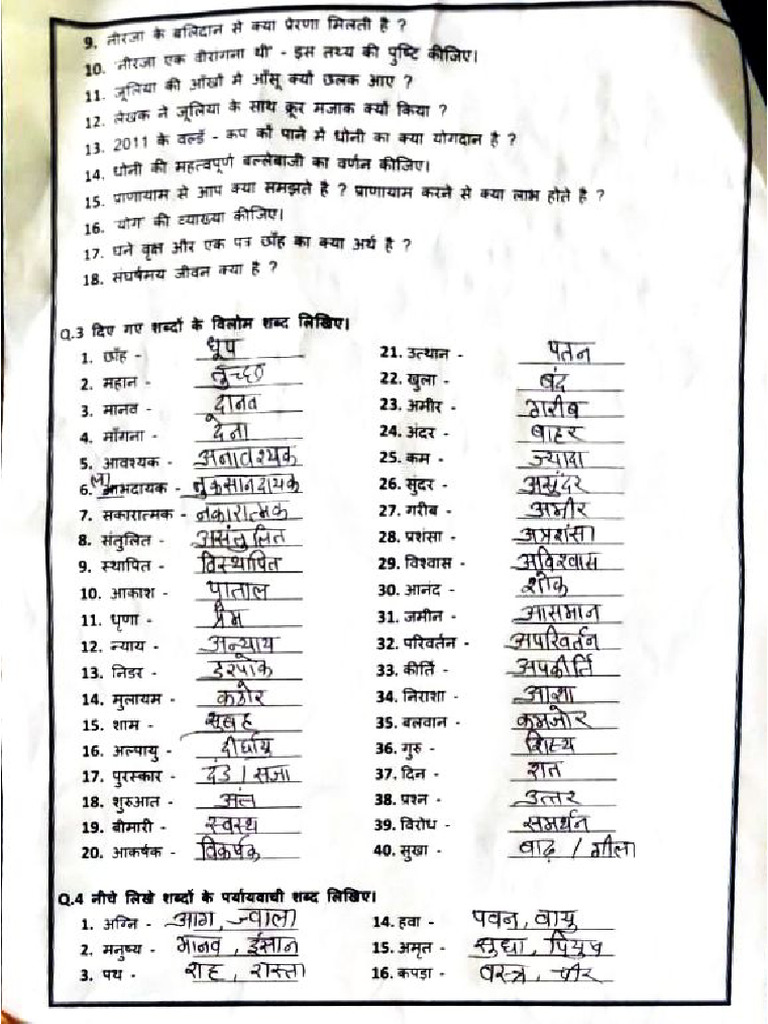 9. नीरजा के बलिदान से क्या प्रेरणा मिलती है ?
10. 'नीरजा एक वीरांगना थी' - इस तथ्य की पुष्टि कीजिए।
11. जूलिया की आँखों में आँसू क्यों छलक आए ?
12. लेखक ने जूलिया के साथ क्रूर मजाक क्यों किया ?
13. 2011 के वर्ल्ड - कप को पाने में धोनी का क्या योगदान है ?
14. धोनी की महत्वपूर्ण बल्लेबाजी का वर्णन कीजिए।
15. प्राणायाम से आप क्या समझते है ? प्राणायाम करने से क्या लाभ होते है ?
16. 'योग' की व्याख्या कीजिए।
17. घने वृक्ष और एक पत्र छाँह का क्या अर्थ है ?
18. संघर्षमय जीवन क्या है ?
Q.3 दिए गए शब्दों के विलोम शब्द लिखिए।
1. छाँह - धूप
2. महान - तुच्छ
3. मानव - दानव
4. माँगना - देना
5. आवश्यक - अनावश्यक
6. (ला)भदायक - नुकसानदायक
7. सकारात्मक - नकारात्मक
8. संतुलित - असंतुलित
9. स्थापित - विस्थापित
10. आकाश - पाताल
11. घृणा - प्रेम
12. न्याय - अन्याय
13. निडर - डरपोक
14. मुलायम - कठोर
15. शाम - सुबह
16. अल्पायु - दीर्घायु
17. पुरस्कार - दंड / सजा
18. शुरुआत - अंत
19. बीमारी - स्वस्थ
20. आकर्षक - विकर्षक
21. उत्थान - पतन
22. खुला - बंद
23. अमीर - गरीब
24. अंदर - बाहर
25. कम - ज्यादा
26. सुंदर - असुंदर
27. गरीब - अमीर
28. प्रशंसा - अप्रशंसा
29. विश्वास - अविश्वास
30. आनंद - शोक
31. जमीन - आसमान
32. परिवर्तन - अपरिवर्तन
33. कीर्ति - अपकीर्ति
34. निराशा - आशा
35. बलवान - कमजोर
36. गुरु - शिष्य
37. दिन - रात
38. प्रश्न - उत्तर
39. विरोध - समर्थन
40. सुखा - बाढ़ / गीला
Q.4 नीचे लिखे शब्दों के पर्यायवाची शब्द लिखिए।
1. अग्नि - आग, ज्वाला
2. मनुष्य - मानव, इंसान
3. पथ - राह, रास्ता
14. हवा - पवन, वायु
15. अमृत - सुधा, पियुष
16. कपड़ा - वस्त्र, चीर